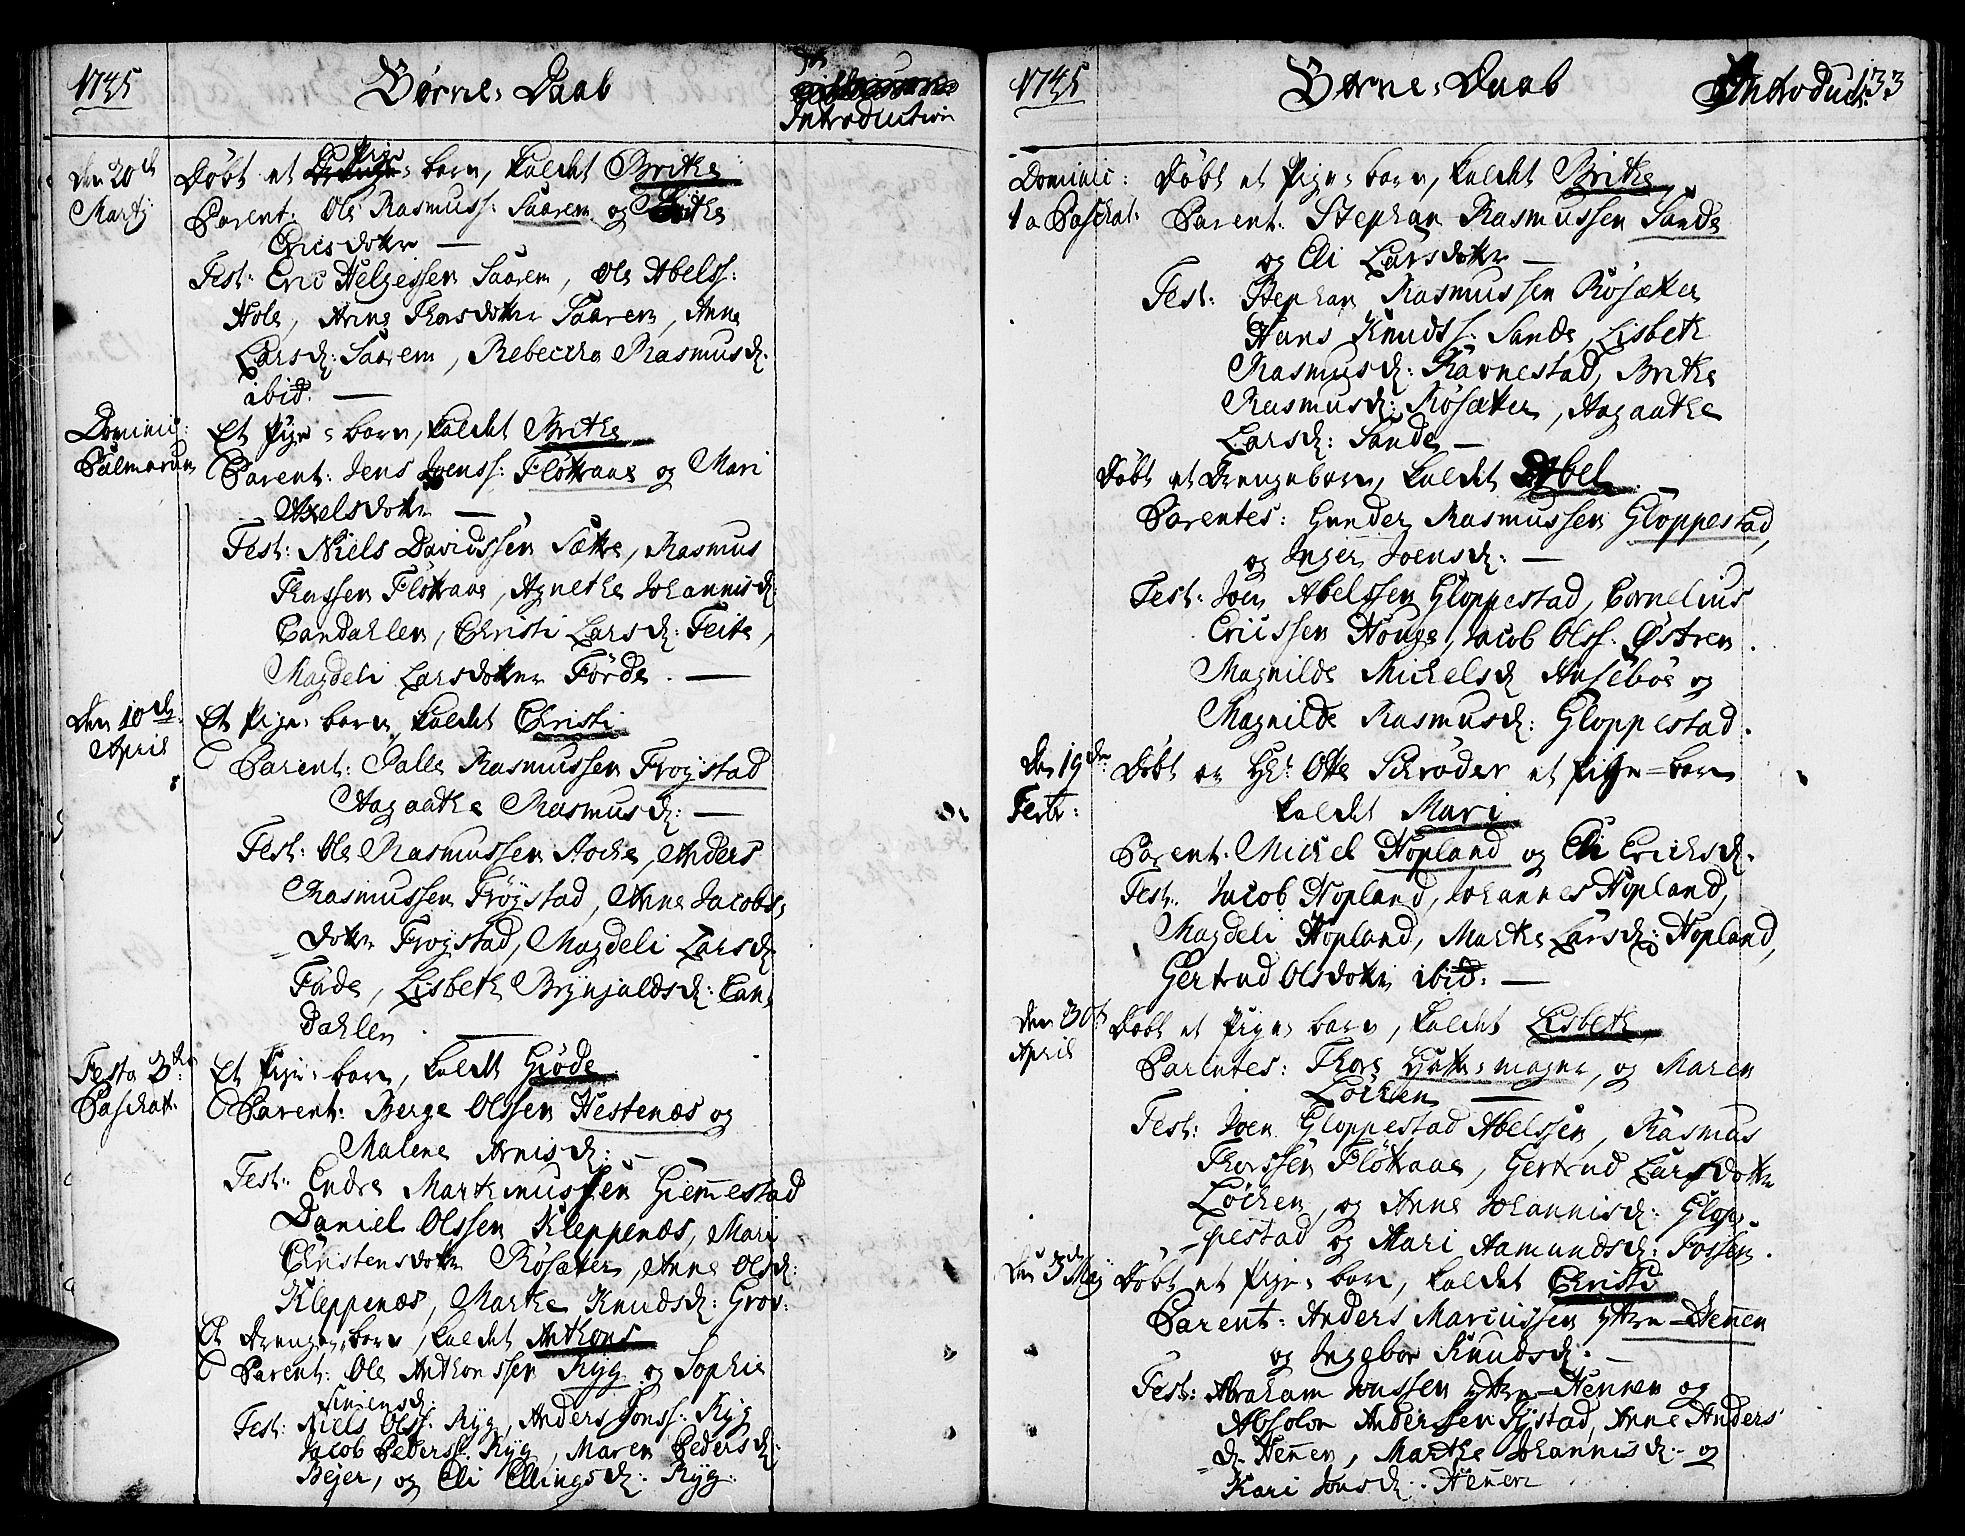 1745
Børne-Daab
Introduction
Den 20de Martij
Døbt et Pige-barn, kaldet Brithe
Parent: Ole Rasmuss: Saarem og Brithe
Ericsdotter —
Test: Eric Helgessen Saarem, Ole Abelss:
Hole, Arine Thorsdotter Saarem, Anne
Larsd: Saarem, Rebeccha Rasmusd:
ibid. —
Dominic: Palmarum
Et Pige-barn, kaldet Brithe
Parent: Jens Joenss: Fløttrane og Mari
Axelsdotter —
Test: Niels Davidssen Sætre, Rasmus
Thorssen Fløttrane, Agnethe Johannisd:
Candahlen, Christi Larsd: Feite,
Magdeli Larsdotter Förde. —
Den 10de April
Et Pige-barn, kaldet Christi
Parent: Palle Rasmussen Frøystad
Aagaathe Rasmusd: —
Test: Ole Rasmussen Aache, Anders
Rasmussen Frøystad, Anne Jacobs-
dotter Frøystad, Magdeli Larsd
Förde, Lisbeth Brynjaldsd: Can-
dahlen. —
Festo 3tio Paschat:
Et Pige-barn, kaldet Giøde
Parent: Berge Olssen Hestenæs og
Malene Arnisd: —
Test: Endre Marthinussen Giemmestad
Daniel Olssen Kleppenæs, Mari
Christensdotter Røsæter, Anne Olsd:
Kleppenæs, Marthe Knudsd: Grov:
Et Drenge-barn, kaldet Anthone
Parent: Ole Anthonssen Ryg og Sophie
Simensd:
Test: Niels Olss: Ryg, Anders Jonss: Ryg
Jacob Pederss: Ryg, Maren Pedersd:
Bejer, og Eli Ellingsd: Ryg.
1745
Børne-Daab
Introduct:
133
Dominic: 1a Paschat:
Døbt et Pige-barn, kaldet Brithe
Parent: Stephan Rasmussen Sande
og Eli Larsdotter —
Test: Stephan Rasmussen Røsæter
Hans Knudss: Sande, Lisbeth
Rasmusd: Ravnestad, Brithe
Rasmusd: Røsæter, Aagaathe
Larsd: Sande —
Døbt et Drengebarn, kaldet Abel
Parentes: Gunder Rasmussen Gloppestad,
og Inger Joensd: —
Test: Joen Abelssen Gloppestad, Cornelius
Ericssen Houge, Jacob Olss: Østren.
Magnilde Mickelsd Husebøe og
Magnilde Rasmusd: Gloppestad.
Den 19de
Døbt er Hr. Otte Schrøder et Pige-barn
kaldet Mari
Parent: Mickel Hopland og Eli Erichsd.
Test: Jacob Hopland, Johannes Hopland,
Magdeli Hopland, Marthe Larsd: Hopland,
Gertrud Olsdotter ibid. —
Den 30t April
Døbt et Pige-barn, kaldet Lisbeth,
Parentes: Thore Hattemager, og Maren
Löchen —
Test: Joen Gloppestad Abelssen, Rasmus
Thorssen Fløttrane, Gertrud Larsdotter
Löchen, og Anne Johannisd: Glop-
pestad og Mari Aamundsd: Fossen.
Den 3de Maj
Døbt et Pige-barn, kaldet Christi
Parent: Anders Marcussen Yttre-Hennen
og Ingebor Knudsd: —
Test: Abraham Jonssen Yttre-Hennen og
Absolon Anderssen Rystad, Anne Anders
d. Hennen, Marthe Johannisd: og
Kari Jonsd: Hennen